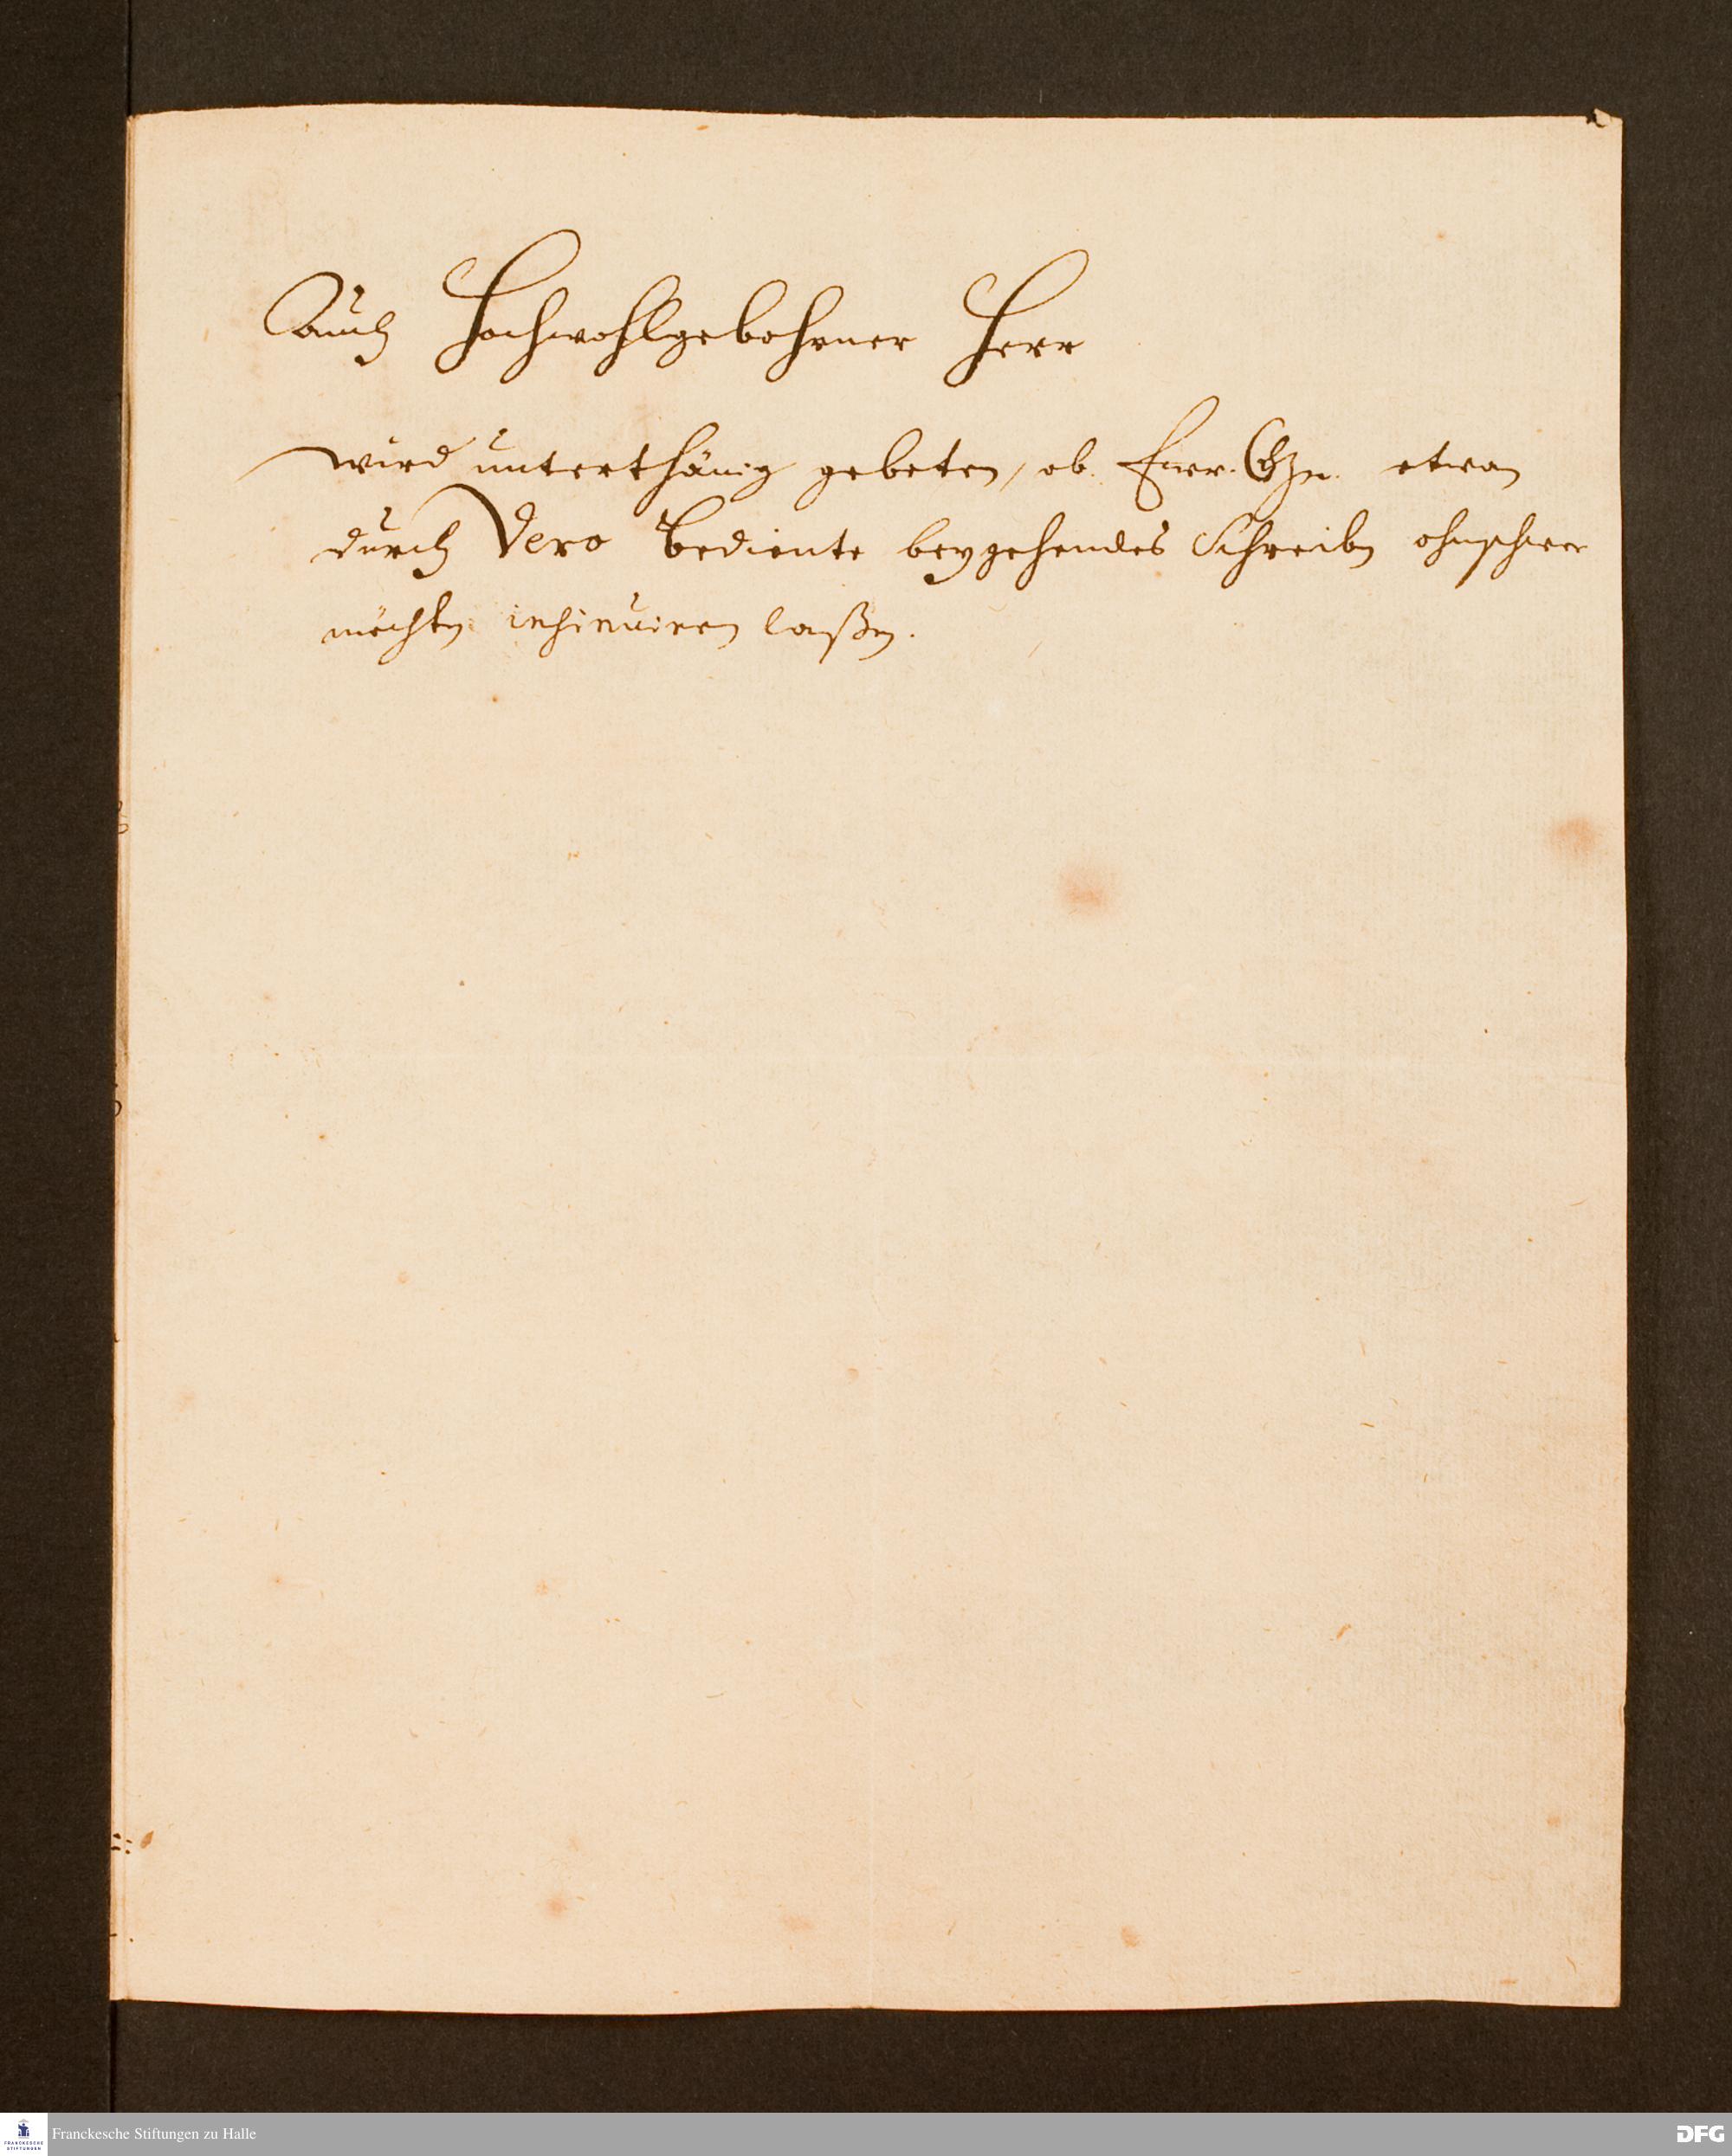 Auch Hochwohlgebohrner Herr
wird unterthänig gebeten, ob. Ewr. etwan
durch Dero Bediente beygehendes Schreiben ohnschwer
möchten insinuiren laßen.
FRANCKESCHE
STIFTUNGEN
Franckesche Stiftungen zu Halle
DFG